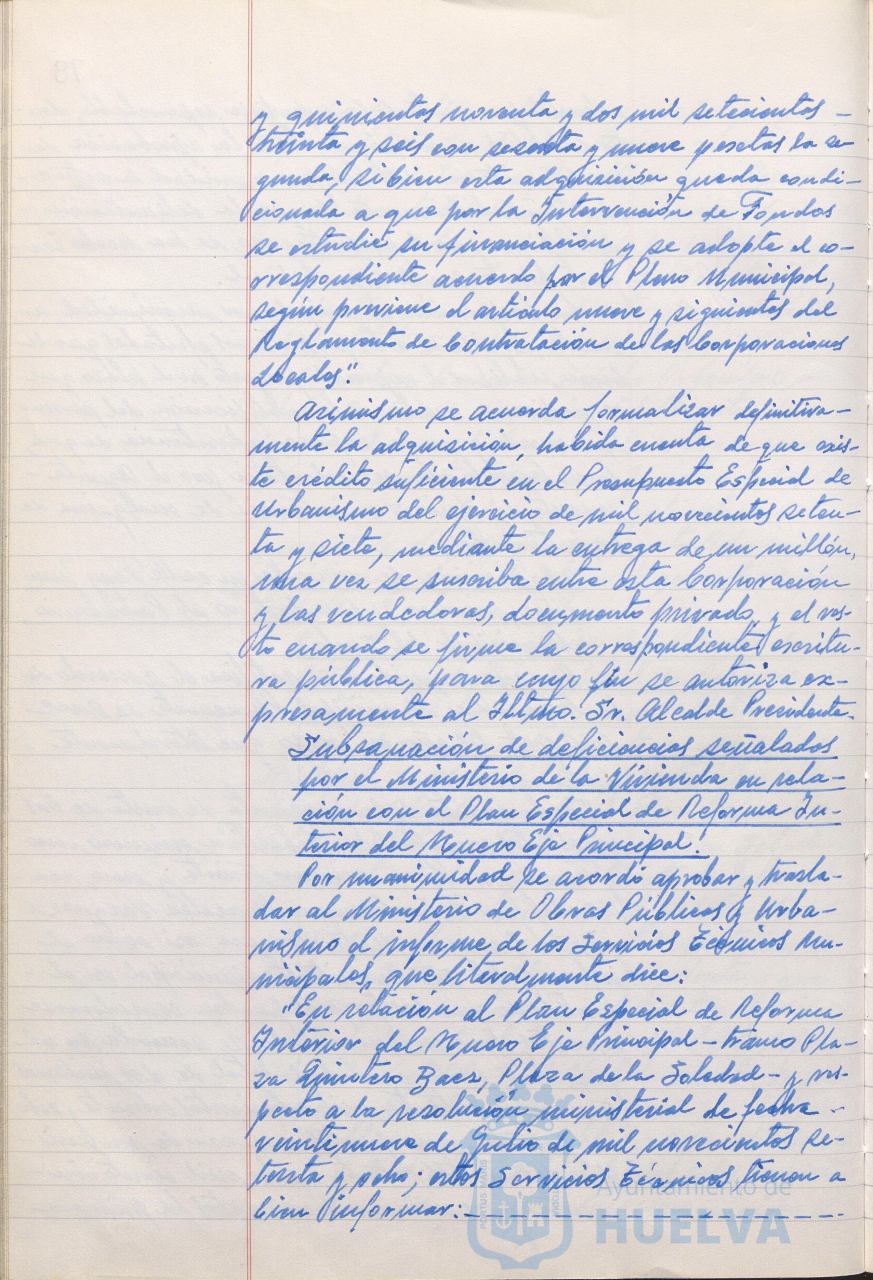 y quinientas noventa y dos mil setecientas -
treinta y seis con sesenta y nueve pesetas la se-
gunda, si bien esta adquisición queda condi-
cionada a que por la Intervención de Fondos
se estudie su financiación y se adopte el co-
rrespondiente acuerdo por el Pleno Municipal,
según previene el artículo nueve y siguientes del
Reglamento de Contratación de las Corporaciones
Locales".
Asimismo se acuerda formalizar definitiva-
mente la adquisición, habida cuenta de que exis-
te crédito suficiente en el Presupuesto Especial de
Urbanismo del ejercicio de mil novecientos seten-
ta y siete, mediante la entrega de un millón,
una vez se suscriba entre esta Corporación
y las vendedoras, documento privado, y el res-
to cuando se firme la correspondiente escritu-
ra pública, para cuyo fin se autoriza ex-
presamente al Iltmo. Sr. Alcalde Presidente.
Subsanación de deficiencias señaladas
por el Ministerio de la Vivienda en rela-
ción con el Plan Especial de Reforma In-
terior del Nuevo Eje Principal.
Por unanimidad se acordó aprobar y trasla-
dar al Ministerio de Obras Públicas y Urba-
nismo el informe de los Servicios Técnicos Mu-
nicipales, que literalmente dice:
"En relación al Plan Especial de Reforma
Interior del Nuevo Eje Principal - tramo Pla-
za Quintero Baez, Plaza de la Soledad - y res-
pecto a la resolución ministerial de fecha -
veintinueve de Julio de mil novecientos se-
tenta y ocho; estos Servicios Técnicos tienen a
bien informar: - - - - - - - - - - - - - - -
Ayuntamiento de
HUELVA